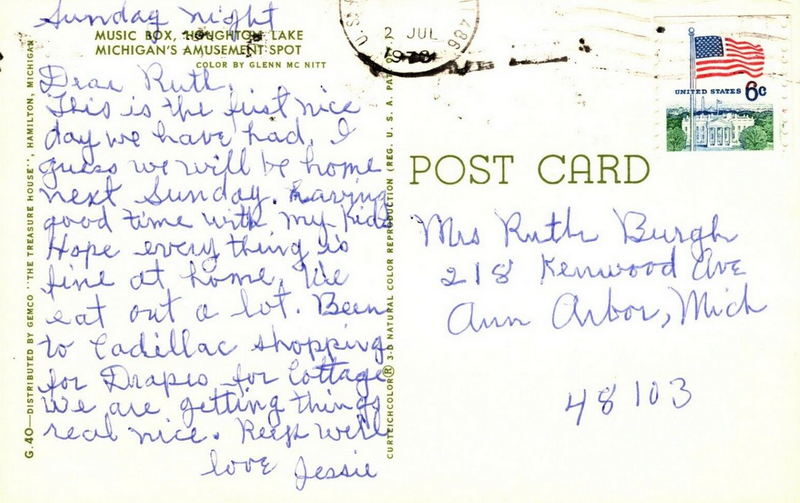 Sunday night
MUSIC BOX, HOUGHTON LAKE
MICHIGAN'S AMUSEMENT SPOT
COLOR BY GLENN MC NITT
Dear Ruth,
This is the first nice
day we have had. I
guess we will be home
next Sunday. Having
good time with my Kids
Hope every thing is
fine at home. We
eat out a lot. Been
to Cadillac shopping
for Drapes for Cottage
we are getting things
real nice. Keep well
love Jessie
G.40—DISTRIBUTED BY GEMCO "THE TREASURE HOUSE", HAMILTON, MICHIGAN
CURTEICHCOLOR® 3-D NATURAL COLOR REPRODUCTION (REG. U. S. A. PAT.
2 JUL
UNITED STATES 6c
POST CARD
Mrs Ruth Burgh
218 Kenwood Ave
Ann Arbor, Mich
48103